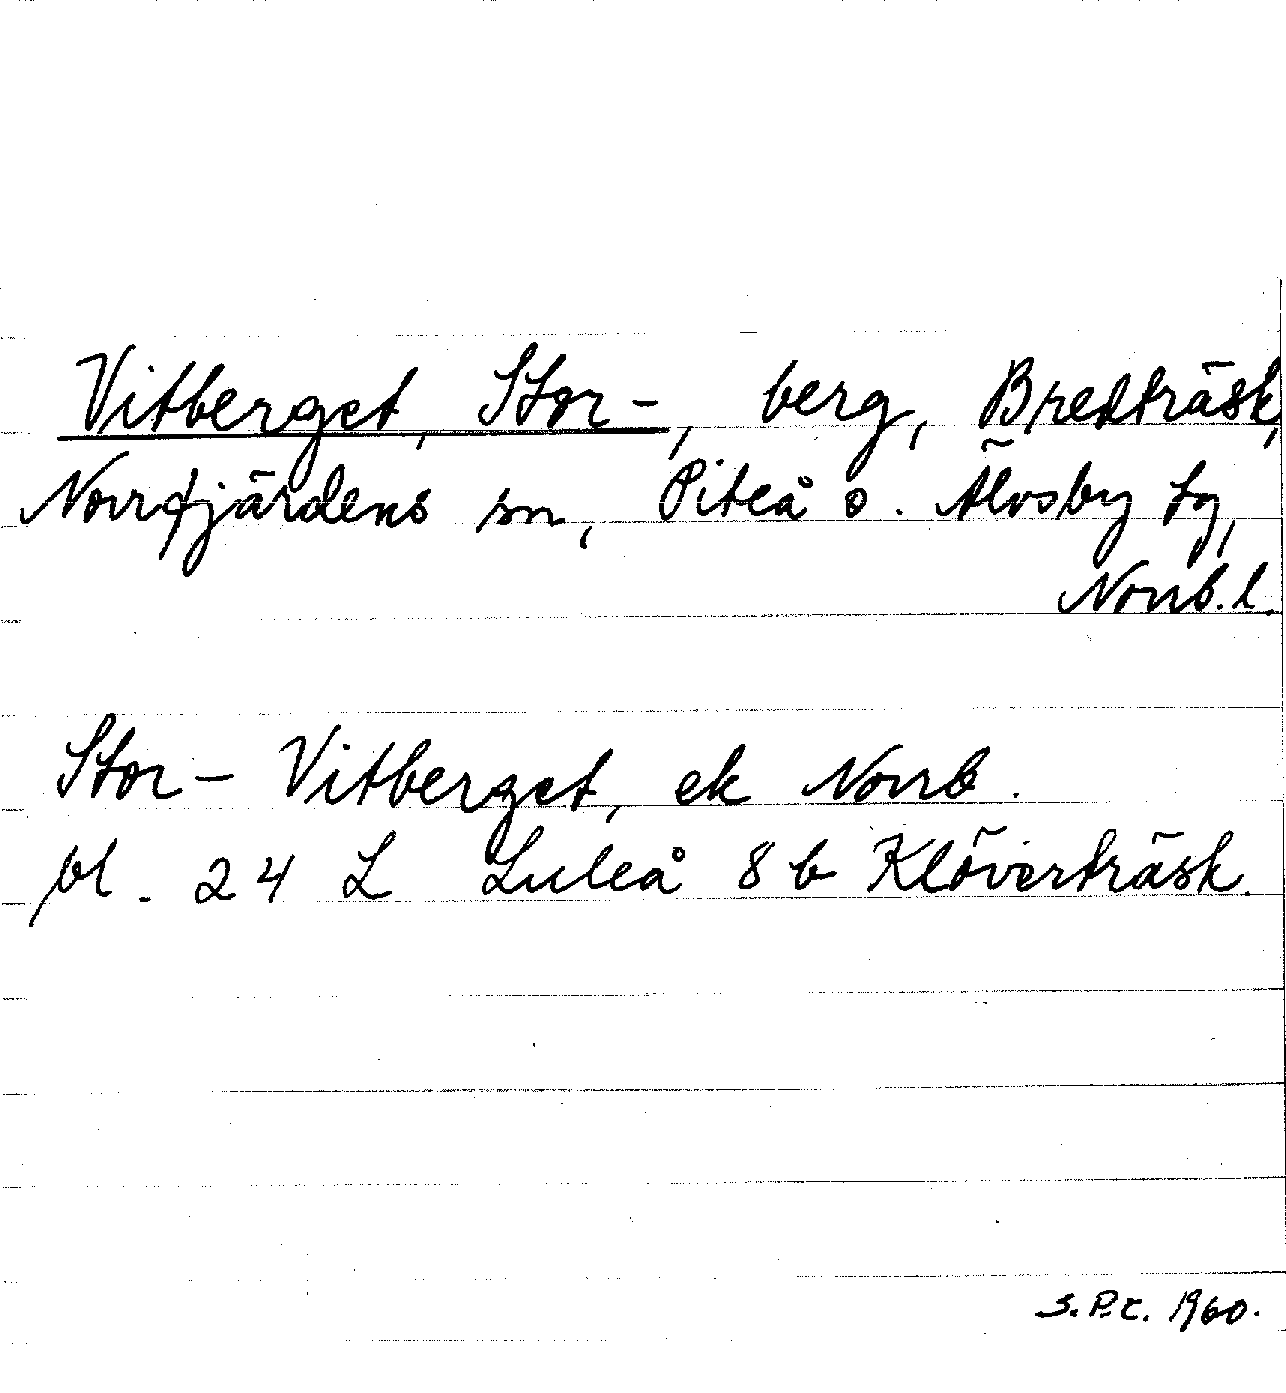 Vitberget, Stor-, berg, Bredträsk,
Norrfjärdens sn, Piteå o. Älvsby tg,
Norrb. l.
Stor-Vitberget, ek Norrb.
bl. 24 L Luleå 8 b Klöverträsk.
S.P.C. 1960.